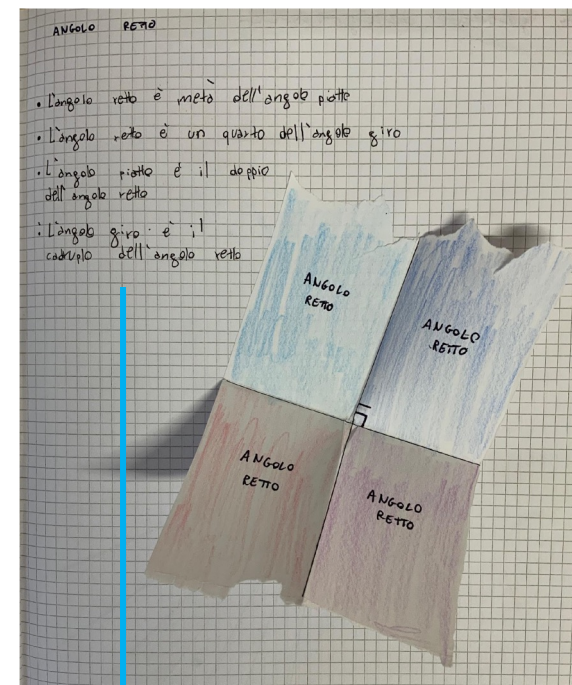 ANGOLO RETTO
• L'angolo retto è metà dell'angolo piatto
• L'angolo retto è un quarto dell'angolo giro
• L'angolo piatto è il doppio
dell'angolo retto
• L'angolo giro è il
cadruplo dell'angolo retto
ANGOLO
RETTO
ANGOLO
RETTO
ANGOLO
RETTO
ANGOLO
RETTO